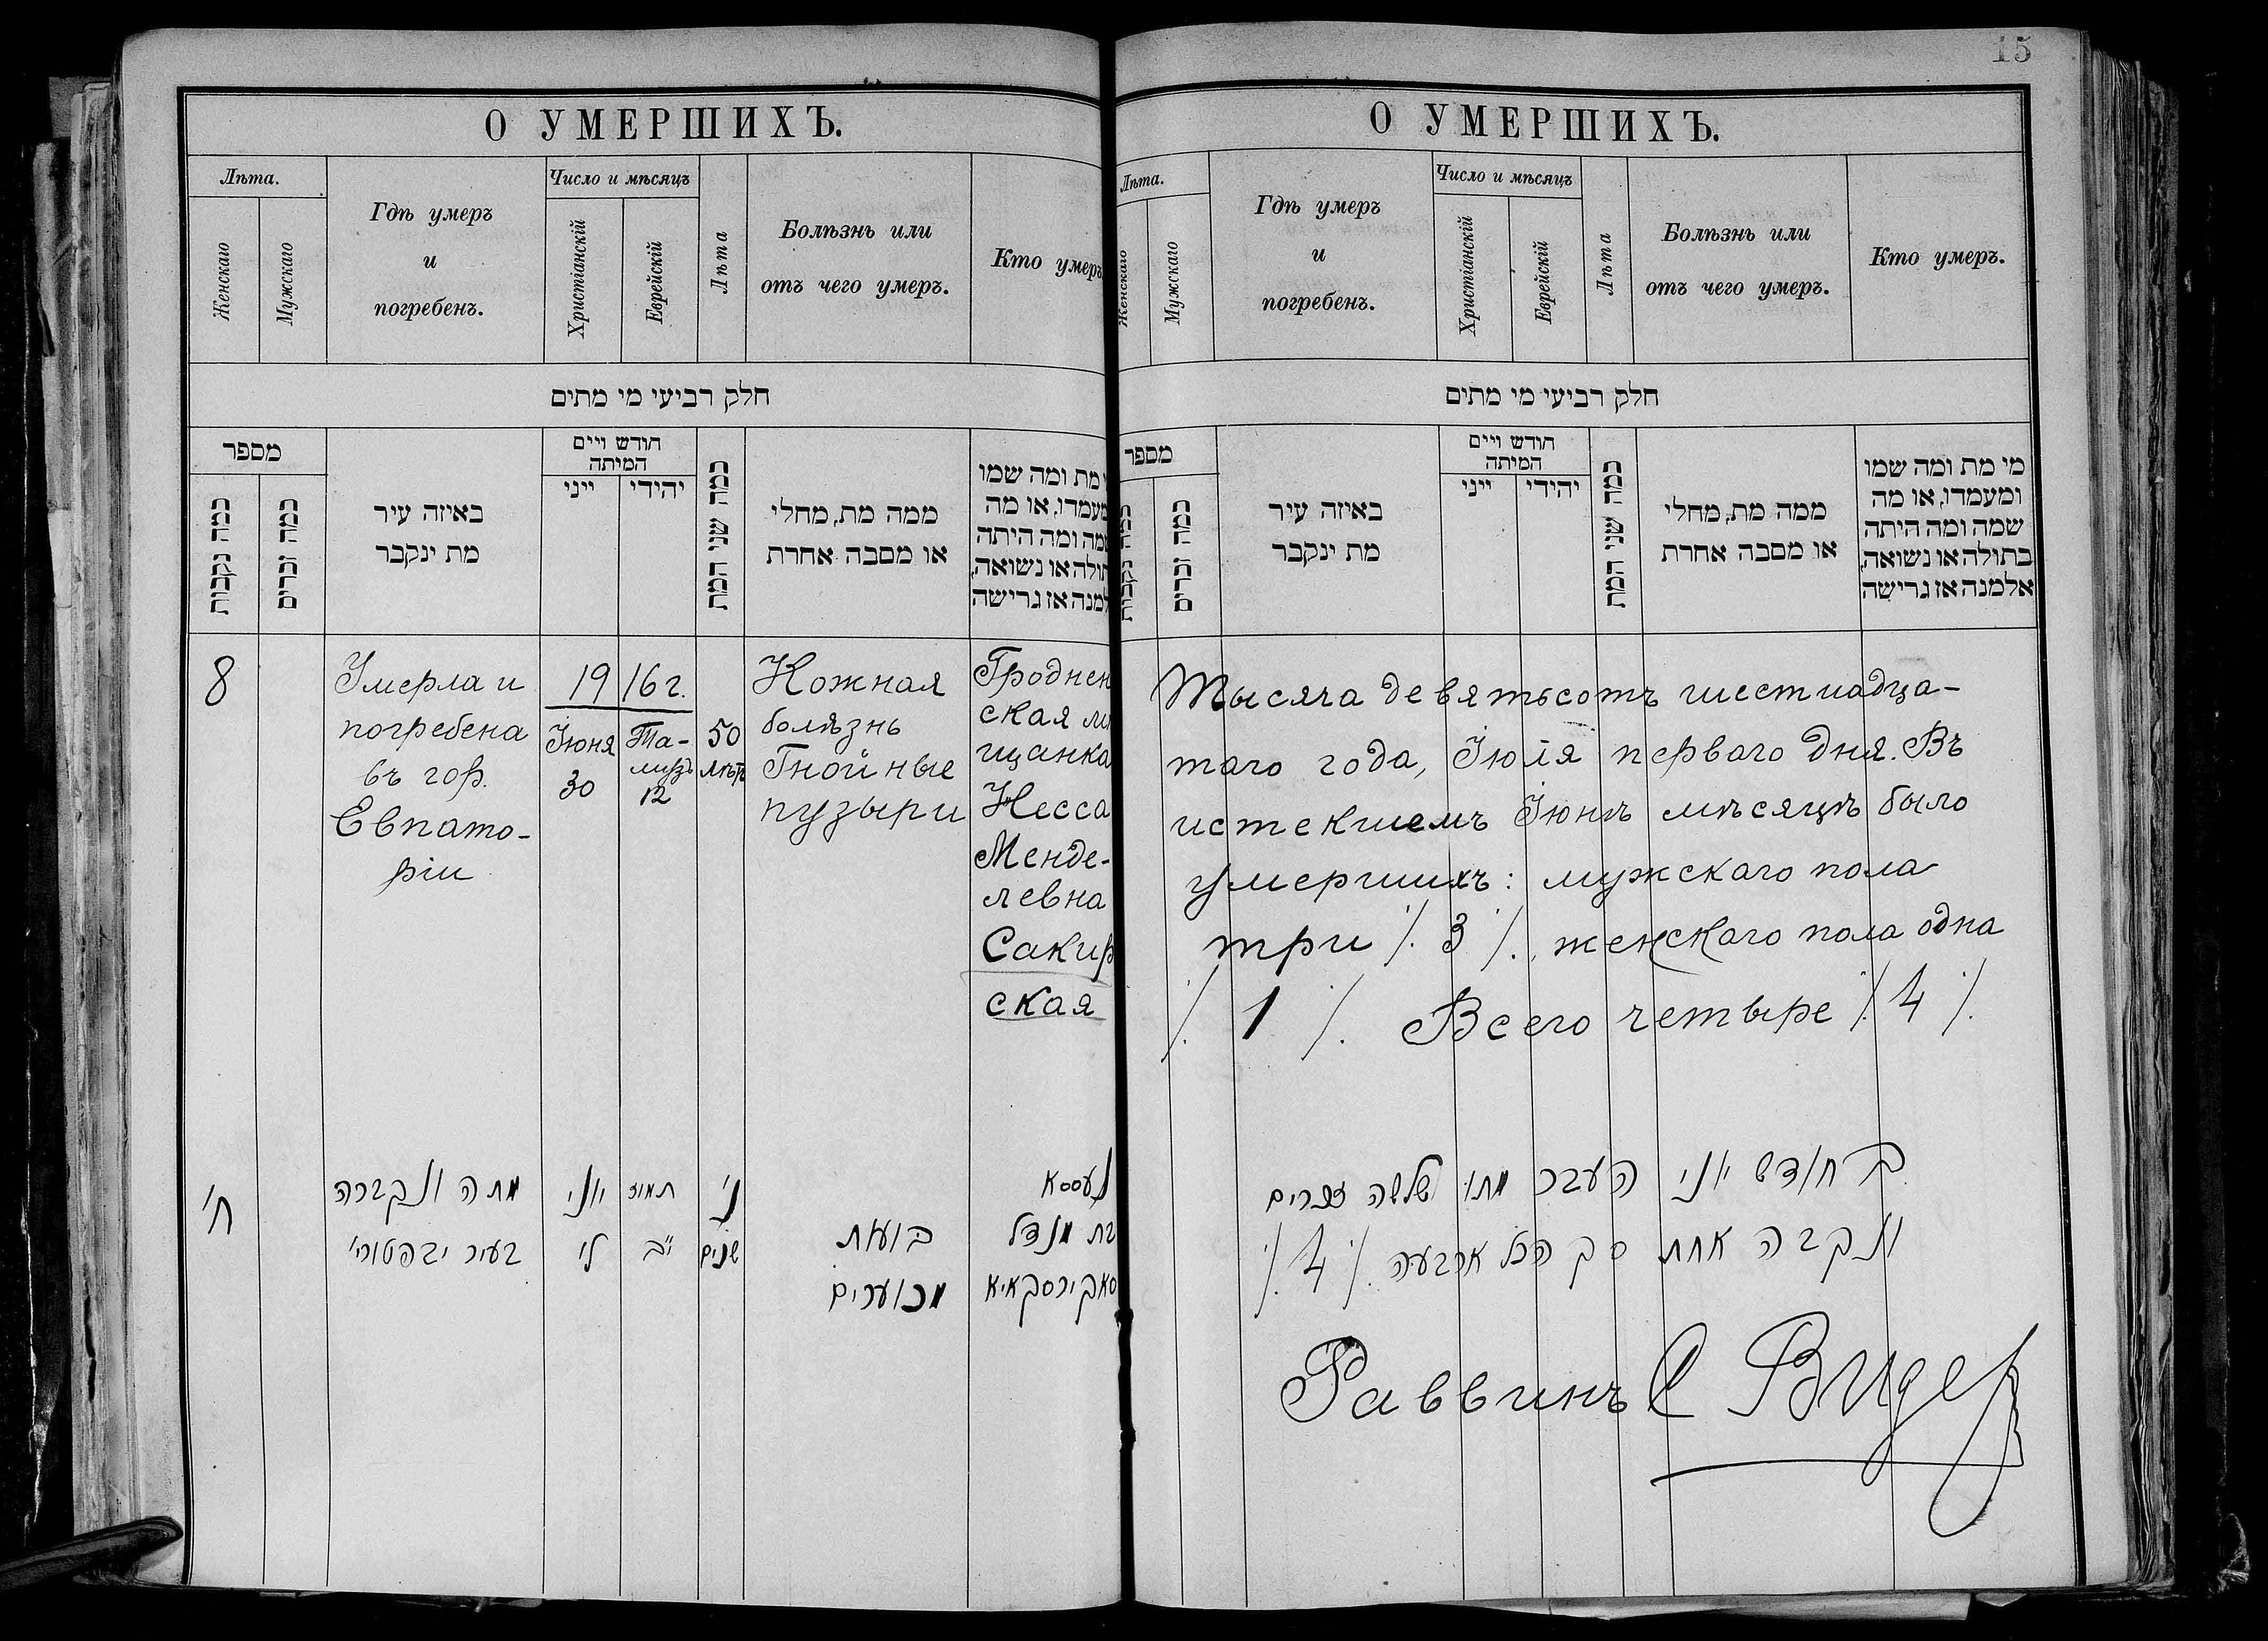 О УМЕРШИХЪ.
Лѣта.
Женскаго
Мужскаго
Гдѣ умеръ
и
погребенъ.
Число и мѣсяцъ
Христіанскій
Еврейскій
Лѣта
Болѣзнь или
отъ чего умеръ.
Кто умеръ
חלק רביעי מי מתים
מספר
כמה נקבות
כמה זכרים
באיזה עיר
מת ינקבר
חודש ויים
המיתה
ייני
יהודי
כמה שני המת
ממה מת, מחלי
או מסבה אחרת
מת ומה שמו
מעמדו, או מה
שמה ומה היתה
תולה או נשואה,
למנה אז גרישה
8
Умерла и
погребена
въ гор.
Евпато-
ріи
1916 г.
Іюня
30
Та-
музъ
12
50
лѣтъ
Кожная
болѣзнь
Гнойные
пузыри
Гроднен
ская мѣ
щанка
Несса
Менде-
левна
Сакир
ская
ח'
מתה ונקברה
בעיר יבפטורי'
יוני
לי
תמוז
י"ב
נ'
שנים
בועות
מכוערים
נעססא
בת מנדל
סאקירסקאיא
15
О УМЕРШИХЪ.
Лѣта.
Женскаго
Мужскаго
Гдѣ умеръ
и
погребенъ.
Число и мѣсяцъ
Христіанскій
Еврейскій
Лѣта
Болѣзнь или
отъ чего умеръ.
Кто умеръ.
חלק רביעי מי מתים
מספר
כמה נקבות
כמה זכרים
באיזה עיר
מת ינקבר
חודש ויים
המיתה
ייני
יהודי
כמה שני המת
ממה מת, מחלי
או מסבה אחרת
מי מת ומה שמו
ומעמדו, או מה
שמה ומה היתה
בתולה או נשואה,
אלמנה אז גרישה
Тысяча девятьсотъ шестнадца-
таго года, Іюля перваго дня. Въ
истекшемъ Іюнѣ мѣсяцѣ было
умершихъ: мужскаго пола
три ./. 3 ./. , женскаго пола одна
./. 1 ./. Всего четыре ./. 4 ./.
בחודש יוני העבר מתו שלשה זכרים
ונקבה אחת סך הכל ארבעה ./. 4 ./.
Раввинъ С Видер